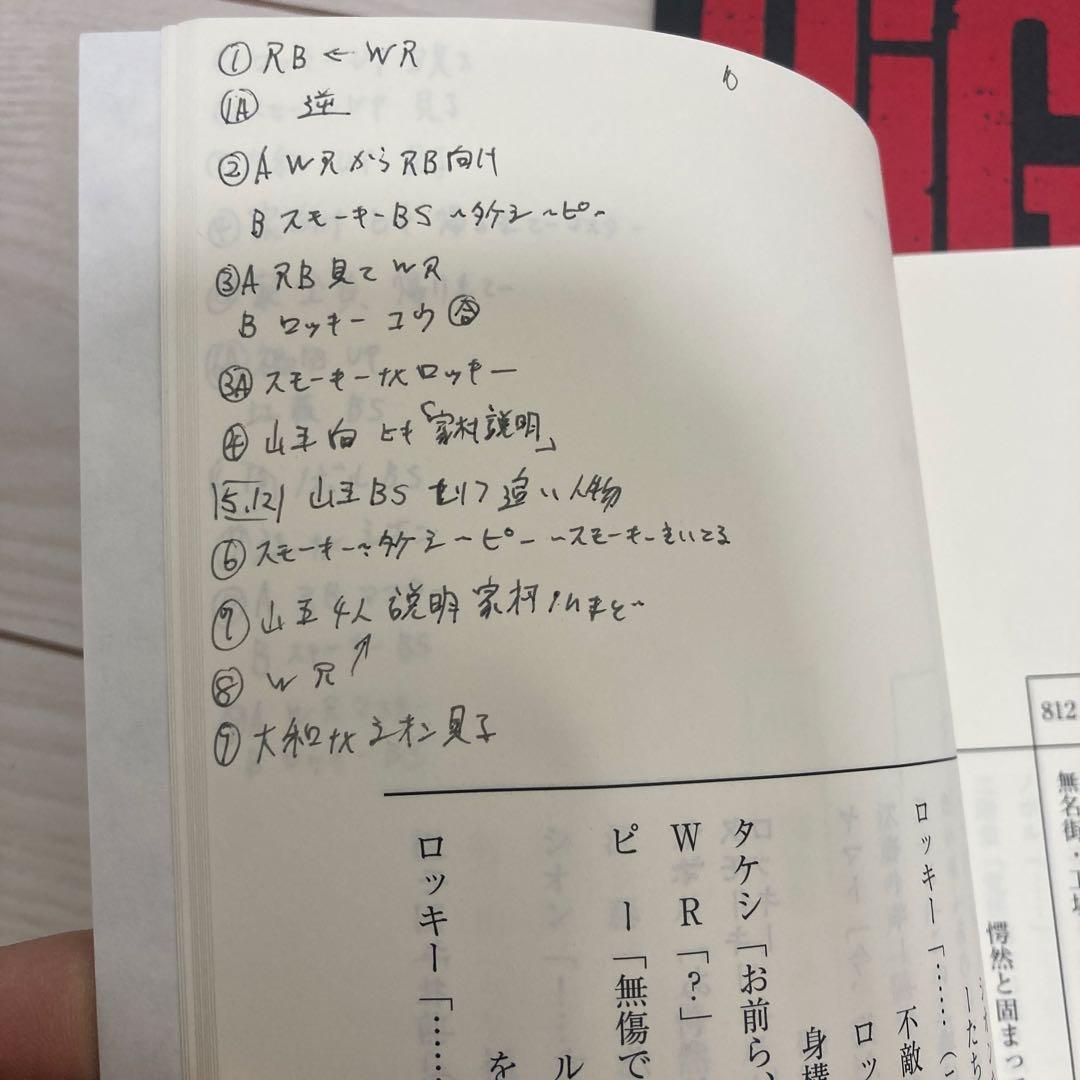 ① RB ← WR
1A 逆
② A WRからRB向け
B スモーキーBS ~タケシ~ピ~
③A RB見てWR
B ロッキー コウ
3A スモーキーナメロッキー
④ 山王向 「家村説明」
5.12 山王BS セリフ追い人物
⑥ スモーキー~タケシ~ピー~スモーキー
⑦ 山王4人 説明 家村
⑧ WR
大和ナメシオン見る
812
無名街・工場
愕然と固まっ
ーたち
ロッキー「……（
不敵
ロッ
身構
タケシ「お前ら、
WR「？」
ピー「無傷で
ル
を
ロッキー「……